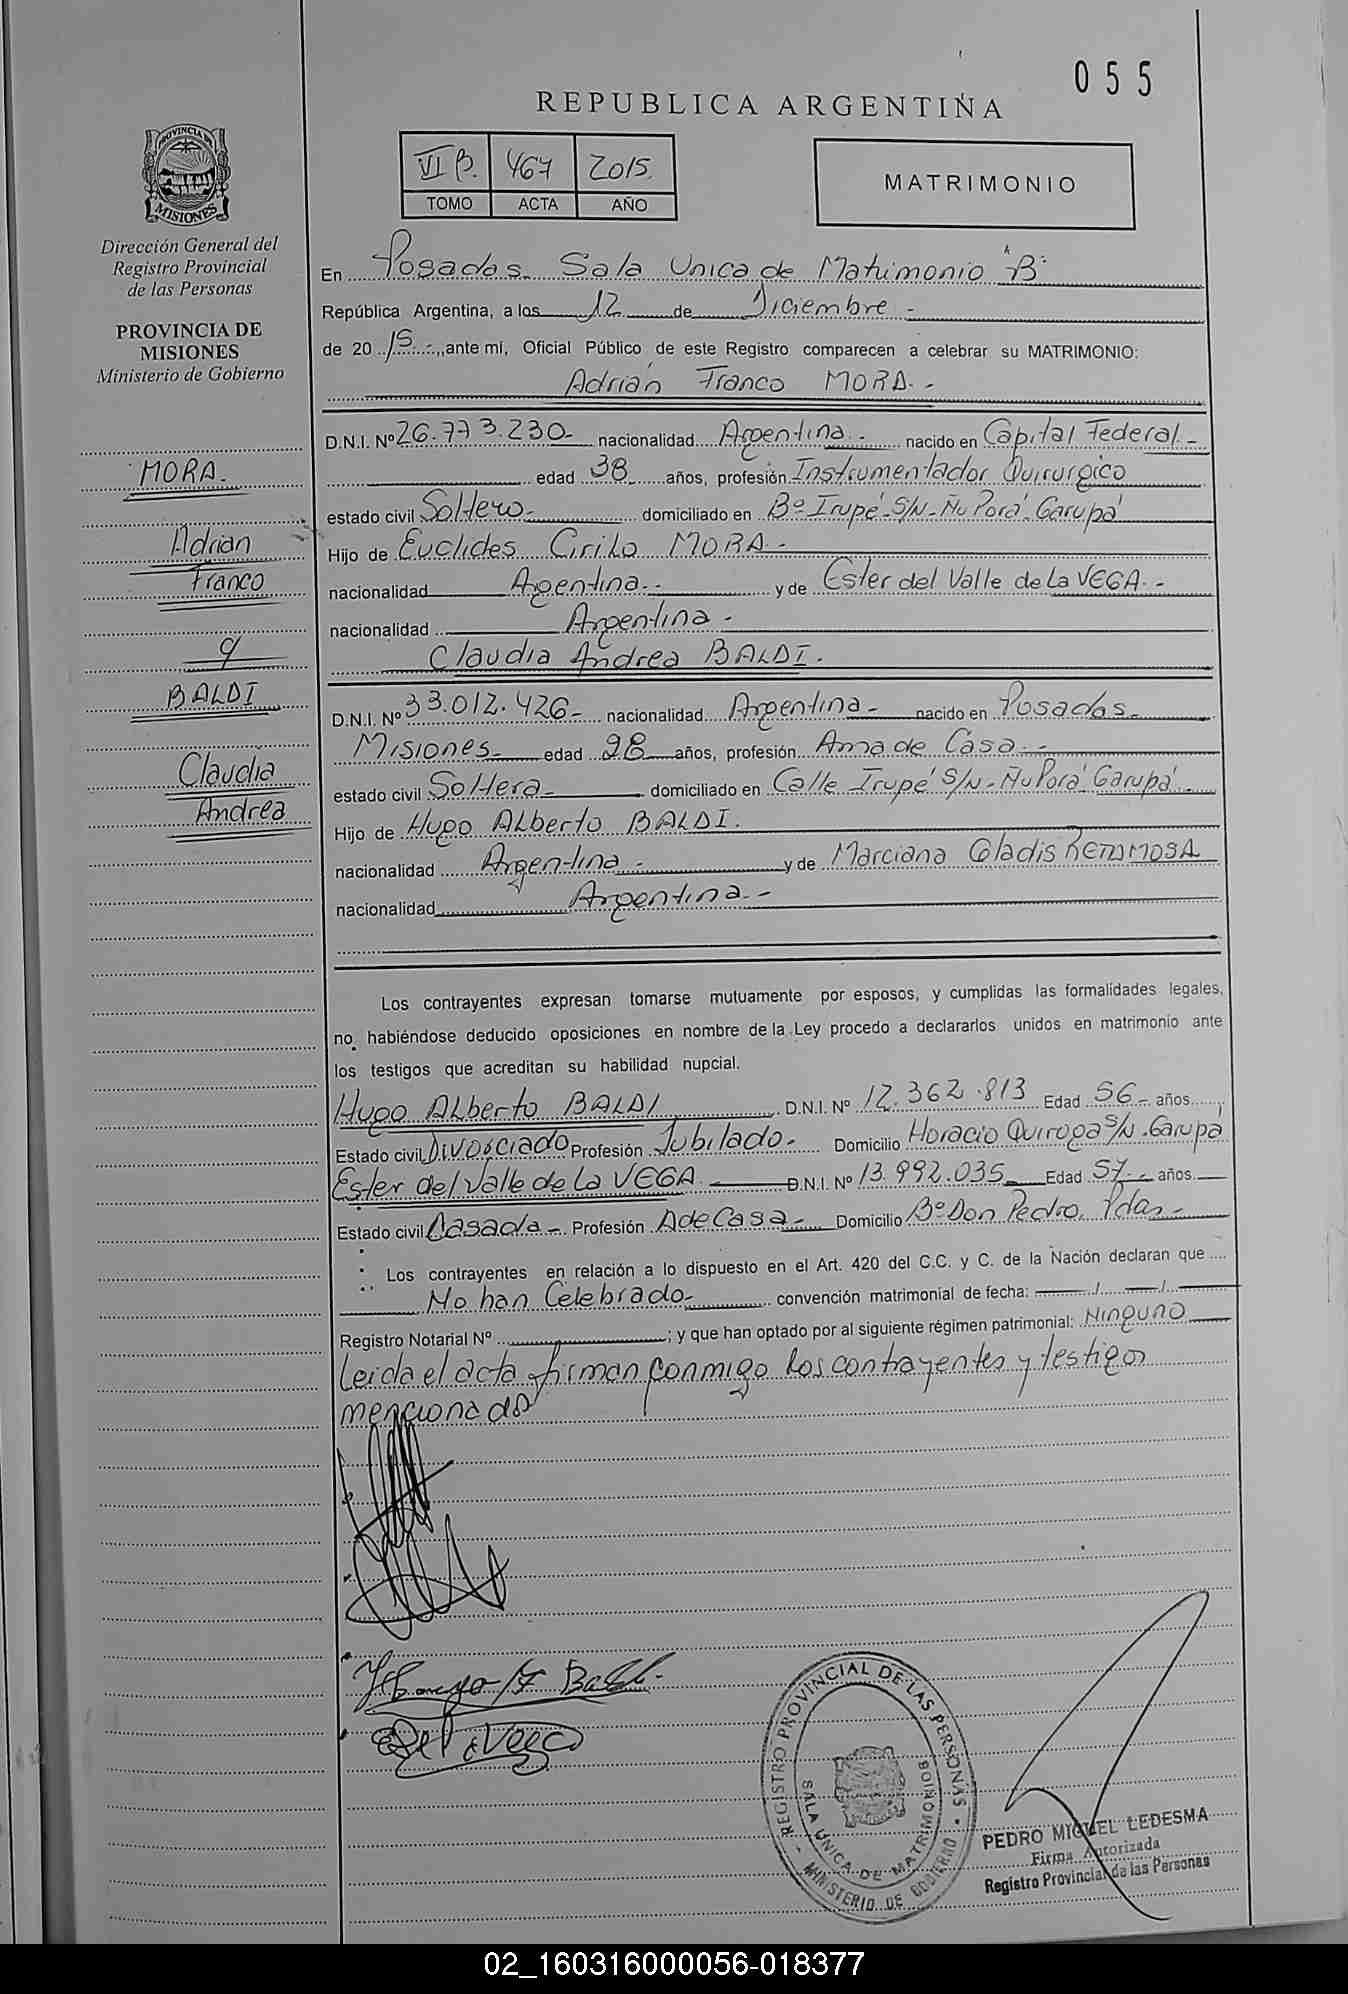 055
REPUBLICA ARGENTINA
VI B. 467 2015.
TOMO ACTA AÑO
MATRIMONIO
PROVINCIA DE
MISIONES
Dirección General del
Registro Provincial
de las Personas
PROVINCIA DE
MISIONES
Ministerio de Gobierno
MORA.
Adrian
Franco
y
BALDI
Claudia
Andrea
En Posadas. Sala Unica de Matrimonio "B"
República Argentina, a los 12 de Diciembre -
de 2015.-, ante mí, Oficial Público de este Registro comparecen a celebrar su MATRIMONIO:
Adrián Franco MORA.-
D.N.I. Nº 26.773.230- nacionalidad Argentina.- nacido en Capital Federal.-
edad 38 años, profesión Instrumentador Quirurgico
estado civil Soltero- domiciliado en Bº Irupé S/N-Ñu Porá-Garupá
Hijo de Euclides Cirilo MORA.-
nacionalidad Argentina.- y de Ester del Valle de La VEGA.-
nacionalidad Argentina-
Claudia Andrea BALDI.
D.N.I. Nº 33.012.426- nacionalidad Argentina- nacido en Posadas-
Misiones- edad 28 años, profesión Ama de Casa.-
estado civil Soltera- domiciliado en Calle Irupé S/N-Ñu Porá Garupá-
Hijo de Hugo Alberto BALDI.
nacionalidad Argentina.- y de Marciana Gladis
nacionalidad Argentina.-
Los contrayentes expresan tomarse mutuamente por esposos, y cumplidas las formalidades legales,
no habiéndose deducido oposiciones en nombre de la Ley procedo a declararlos unidos en matrimonio ante
los testigos que acreditan su habilidad nupcial.
Hugo Alberto BALDI D.N.I. Nº 12.362.813 Edad 56- años
Estado civil Divosciado Profesión Jubilado- Domicilio Horacio Quiroga S/N-Garupá
Ester del Valle de La VEGA D.N.I. Nº 13.992.035 Edad 57- años
Estado civil Casada- Profesión A de Casa- Domicilio Bº Don Pedro, Pdas-
Los contrayentes en relación a lo dispuesto en el Art. 420 del C.C. y C. de la Nación declaran que
No han Celebrado- convención matrimonial de fecha: / /
Registro Notarial Nº ; y que han optado por al siguiente régimen patrimonial: Ninguno
Leida el acta firman conmigo los contrayentes y testigos
mencionados
REGISTRO PROVINCIAL DE LAS PERSONAS
SALA UNICA DE MATRIMONIOS
MINISTERIO DE GOBIERNO
PEDRO MIGUEL LEDESMA
Firma Autorizada
Registro Provincial de las Personas
02_160316000056-018377